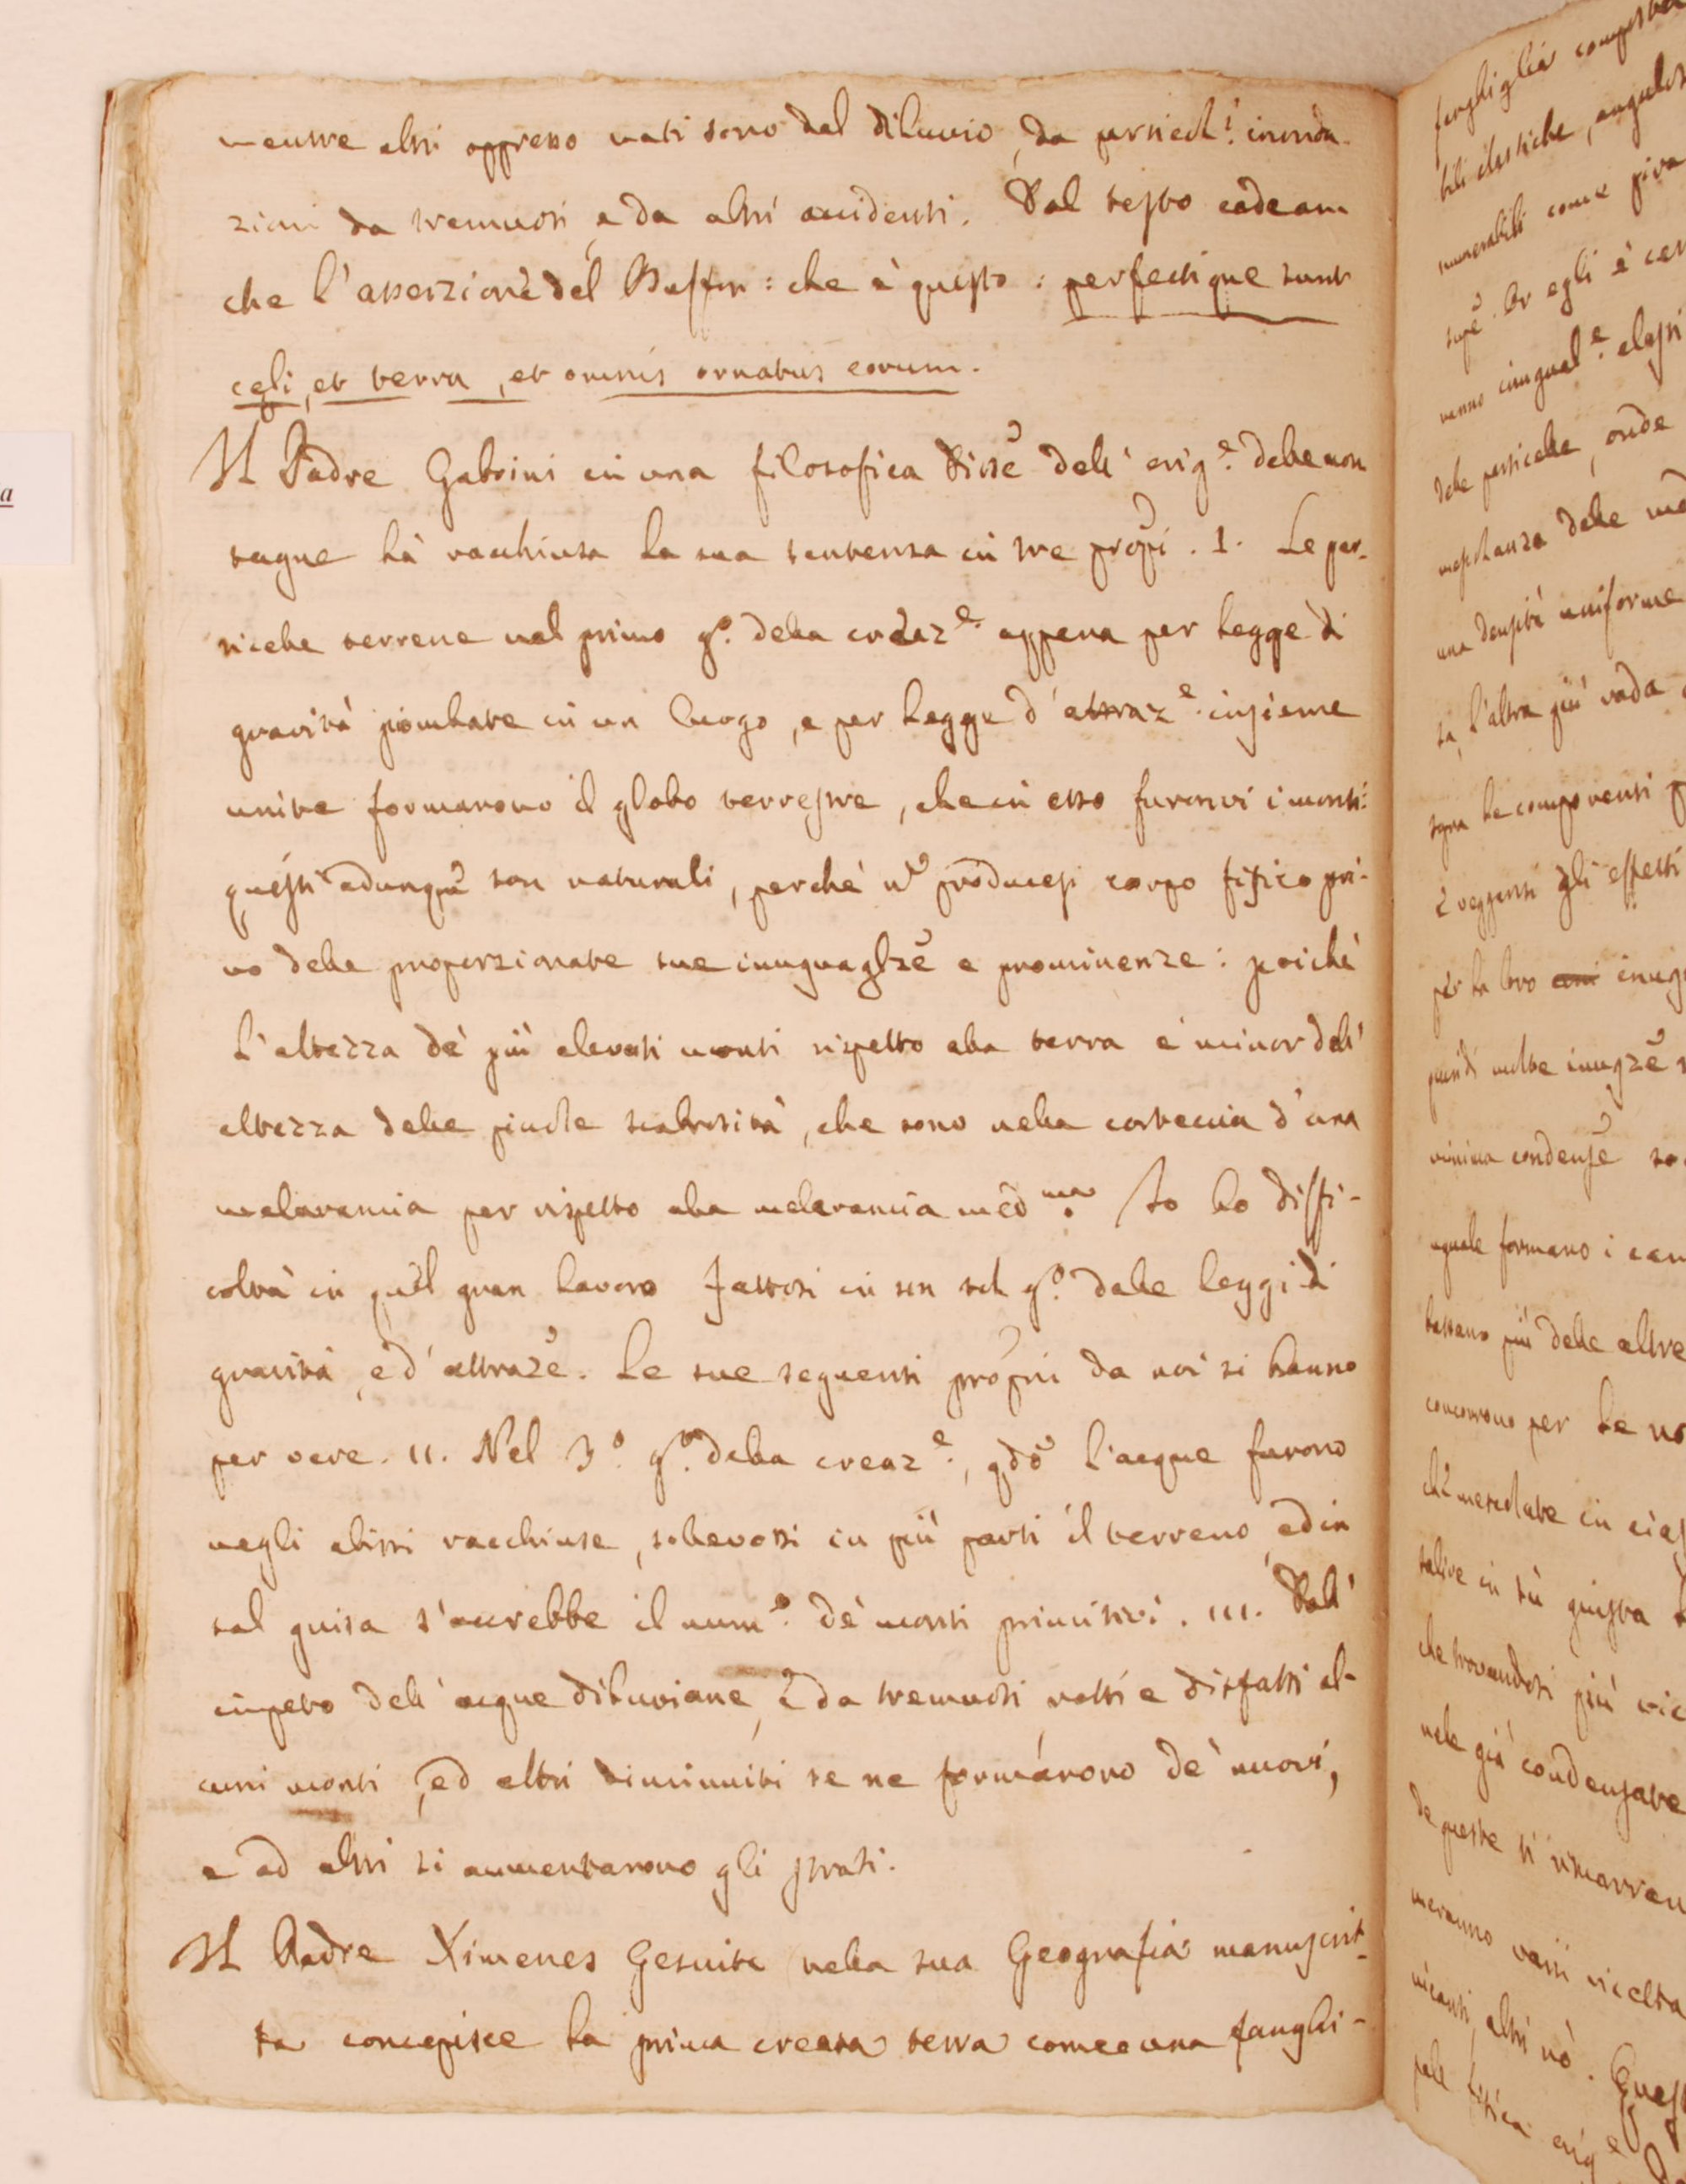 mentre altri appresso nati sono dal diluvio, da inonda-
zioni da tremuoti, e da altri accidenti. Dal testo
che l'asserzione del Buffon: che è questo: perfectique sunt
cęli, et terra, et omnis ornatus eorum.
Il Padre Gabrini in una filosofica disse dell' orig.e delle mon
tagne hà racchiusa la sua sentenza in tre propi. 1. Le par-
ticelle terrene nel primo g.o della creaz.e appena per legge di
gravità piombate in un luogo, e per legge d'attraz.e insieme
unite formarono il globo terrestre, che in esso furonvi i monti:
questi adunque son naturali, perchè nō producesi corpo fisico pri-
vo delle proporzionate sue inuguaglze e prominenze: poichè
l'altezza de' più elevati monti rispetto alla terra è minor dell'
altezza delle picciole scabrosità, che sono nella corteccia d'una
melarancia per rispetto alla melarancia med.ma Io ho diffi-
coltà in quel gran lavoro fattosi in un sol g.o dalle leggi di
gravità, e d'attraze. Le sue seguenti propni da noi si hanno
per vere. II. Nel 3.o g.o della creaz.e, qdo l'acque furono
negli abissi racchiuse, sollevossi in più parti il terreno, ed in
tal guisa s'accrebbe il num.o de' monti primitivi. III. Dall'
impeto dell' acque diluviane, e da tremuoti rotti e disfatti al-
cuni monti, ed altri diminuiti se ne formàrono de' nuovi,
e ad altri si aumentarono gli strati.
Il Padre Ximenes Gesuita nella sua Geografia manuscrit-
ta concepisce la prima creata terra come una fanghi-
fanghiglia composta
bili elastiche, angulos
numerabili come
Or egli è cer
inugual.e
delle particelle, onde
mescolanza delle
una densità uniforme
ta, l'altra più rada
le componenti
e veggensi gli effetti
per la loro inug
quindi molte inugze
condense
uguale formano i
più delle altre
concorrono per le
mescolate in
salire in sù giusta
che trovandosi più vic
nelle già condensate
da queste si rimarran
varii
altri nò. Quest
fisica orig.e